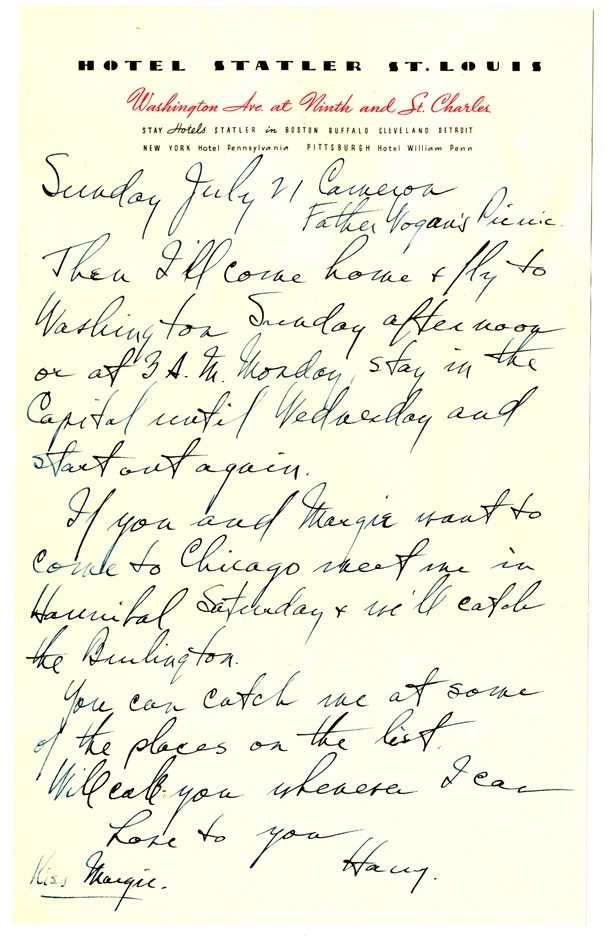 HOTEL STATLER ST. LOUIS
Washington Ave. at Ninth and St. Charles
STAY Hotels STATLER in BOSTON BUFFALO CLEVELAND DETROIT
NEW YORK Hotel Pennsylvania PITTSBURGH Hotel William Penn
Sunday July 21 Cameron
Father Vogan's Picnic.
Then I'll come home & fly to
Washington Sunday afternoon
or at 3 A.M. Monday, stay in the
Capital until Wednesday and
start out again.
If you and Margie want to
come to Chicago meet me in
Hannibal Saturday & we'll catch
the Burlington.
You can catch me at some
of the places on the list.
Will call you whenever I can
Love to you
Harry.
Kiss Margie.